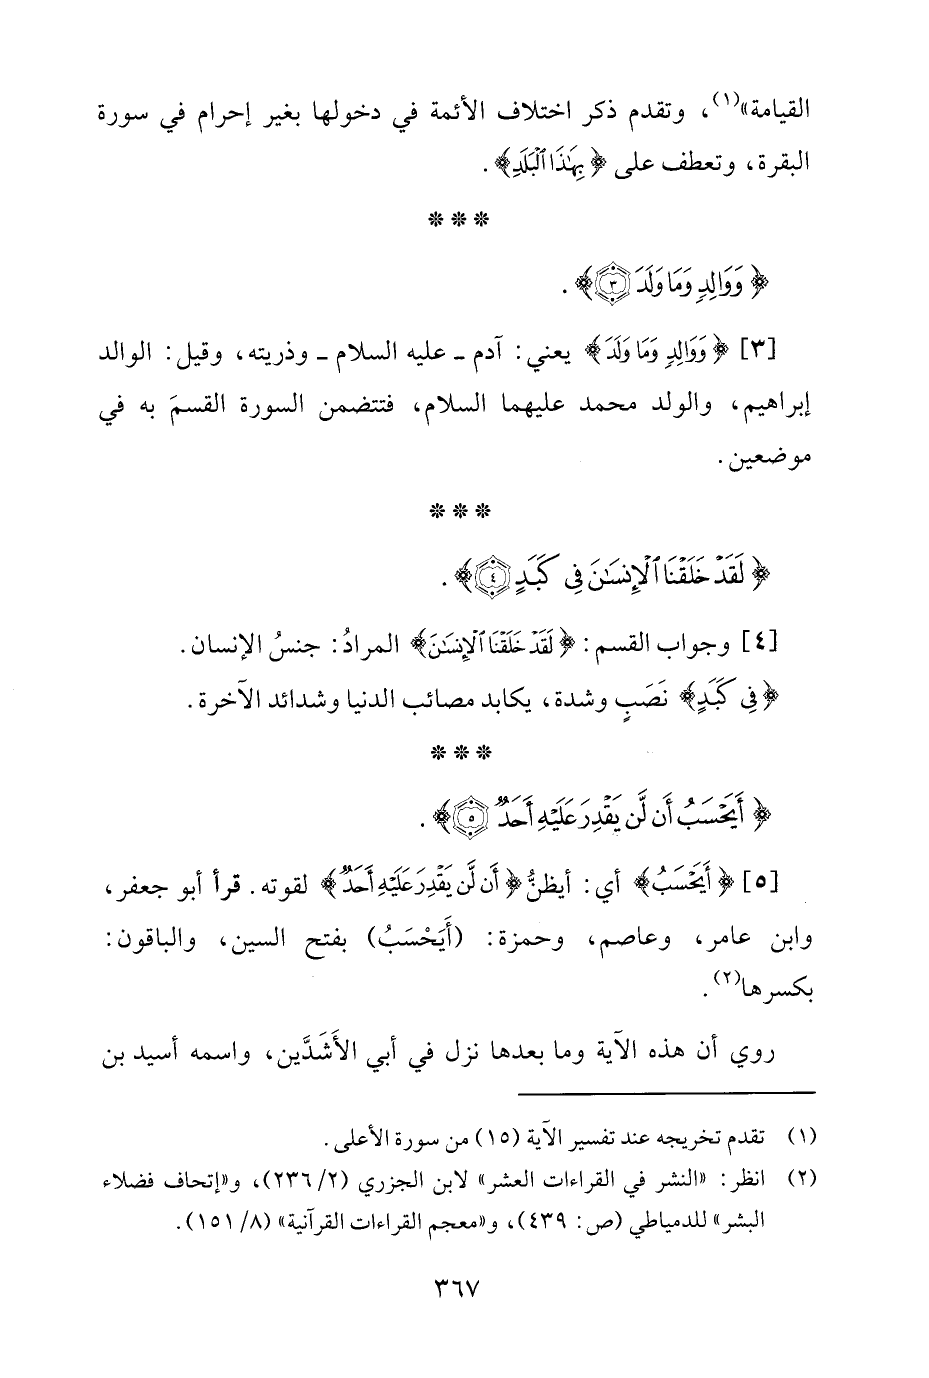 القيامة»(١)، وتقدم ذكر اختلاف الأئمة في دخولها بغير إحرام في سورة
البقرة، وتعطف على ﴿بِهَٰذَا ٱلْبَلَدِ﴾.
***
﴿وَوَالِدٍ وَمَا وَلَدَ ٣﴾.
[٣] ﴿وَوَالِدٍ وَمَا وَلَدَ﴾ يعني: آدم ـ عليه السلام ـ وذريته، وقيل: الوالد
إبراهيم، والولد محمد عليهما السلام، فتتضمن السورة القسمَ به في
موضعين.
***
﴿لَقَدْ خَلَقْنَا ٱلْإِنسَٰنَ فِي كَبَدٍ ٤﴾.
[٤] وجواب القسم: ﴿لَقَدْ خَلَقْنَا ٱلْإِنسَٰنَ﴾ المرادُ: جنسُ الإنسان.
﴿فِي كَبَدٍ﴾ نَصَبٍ وشدة، يكابد مصائب الدنيا وشدائد الآخرة.
***
﴿أَيَحْسَبُ أَن لَّن يَقْدِرَ عَلَيْهِ أَحَدٌ ٥﴾.
[٥] ﴿أَيَحْسَبُ﴾ أي: أيظنُّ ﴿أَن لَّن يَقْدِرَ عَلَيْهِ أَحَدٌ﴾ لقوته. قرأ أبو جعفر،
وابن عامر، وعاصم، وحمزة: (أَيَحْسَبُ) بفتح السين، والباقون:
بكسرها(٢).
روي أن هذه الآية وما بعدها نزل في أبي الأَشَدَّين، واسمه أسيد بن
(١) تقدم تخريجه عند تفسير الآية (١٥) من سورة الأعلى.
(٢) انظر: «النشر في القراءات العشر» لابن الجزري (٢/ ٢٣٦)، و«إتحاف فضلاء
البشر» للدمياطي (ص: ٤٣٩)، و«معجم القراءات القرآنية» (٨/ ١٥١).
٣٦٧